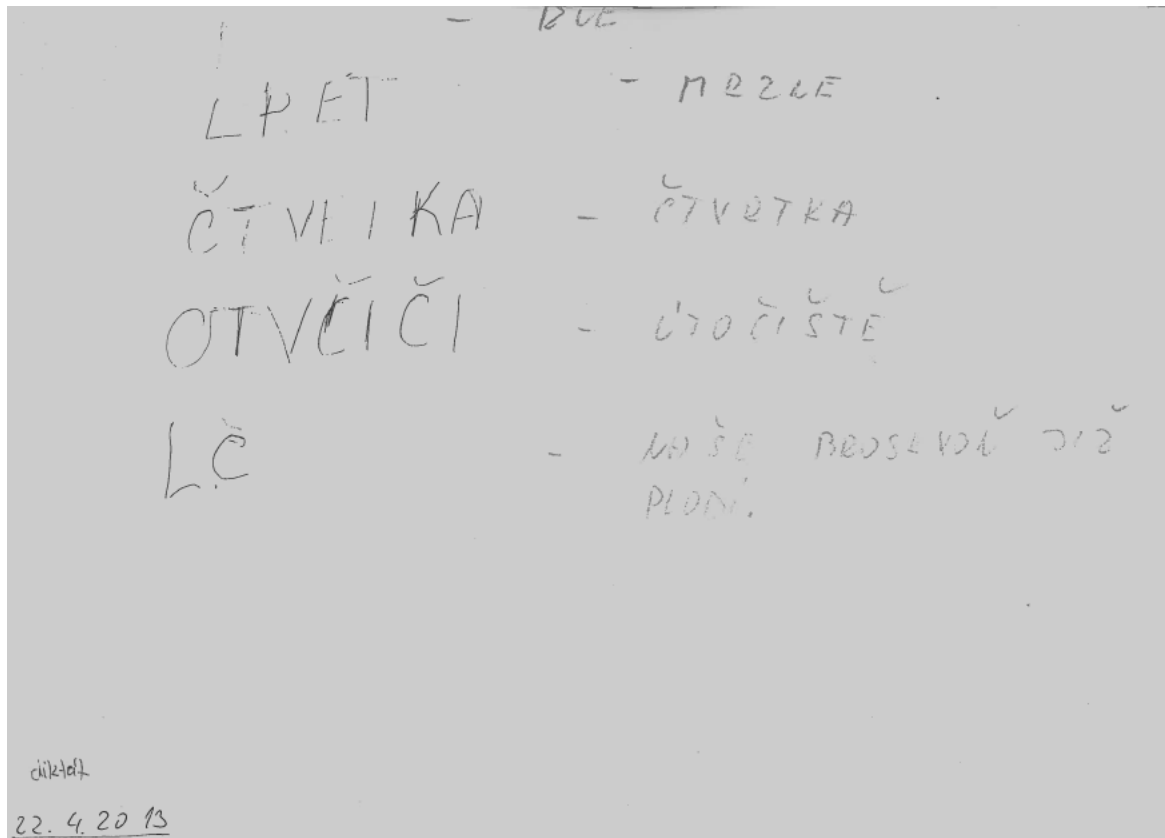 LPET - MRZNE
ČTVLIKA - ČTVRTKA
OTVČIČI - ÚTOČIŠTĚ
LČ - NAŠE BROSKVOŇ JIŽ
PLODÍ.
diktát
22. 4. 2013